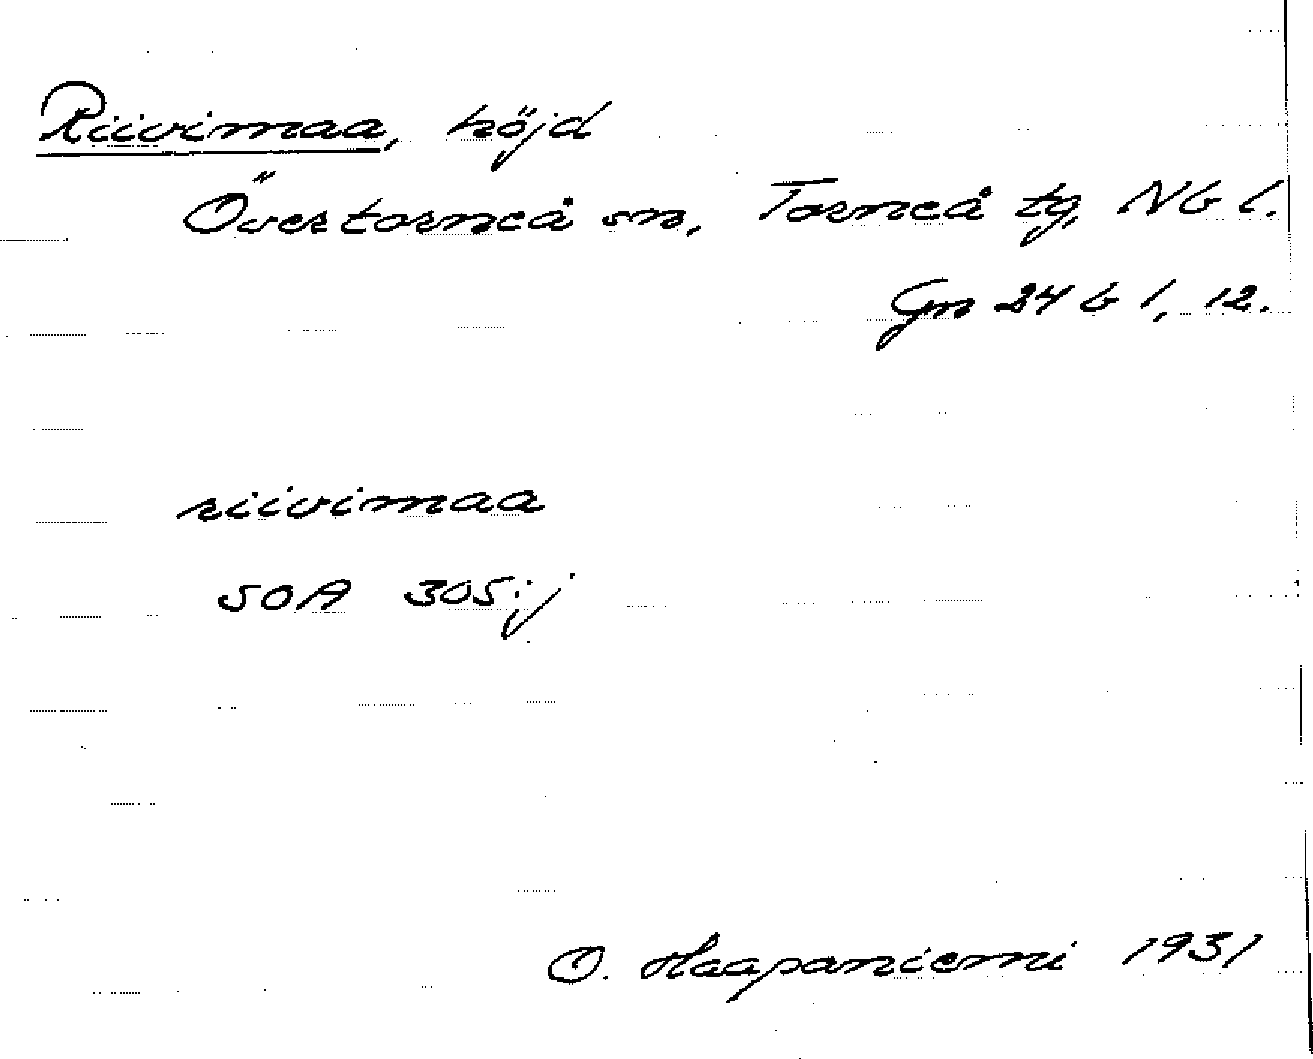 Riivimaa, höjd
Övertorneå sn, Torneå tg, Nb l.
Gn 24 b 1, 12.
riivimaa
SOA 305:j
O. Haapaniemi 1931